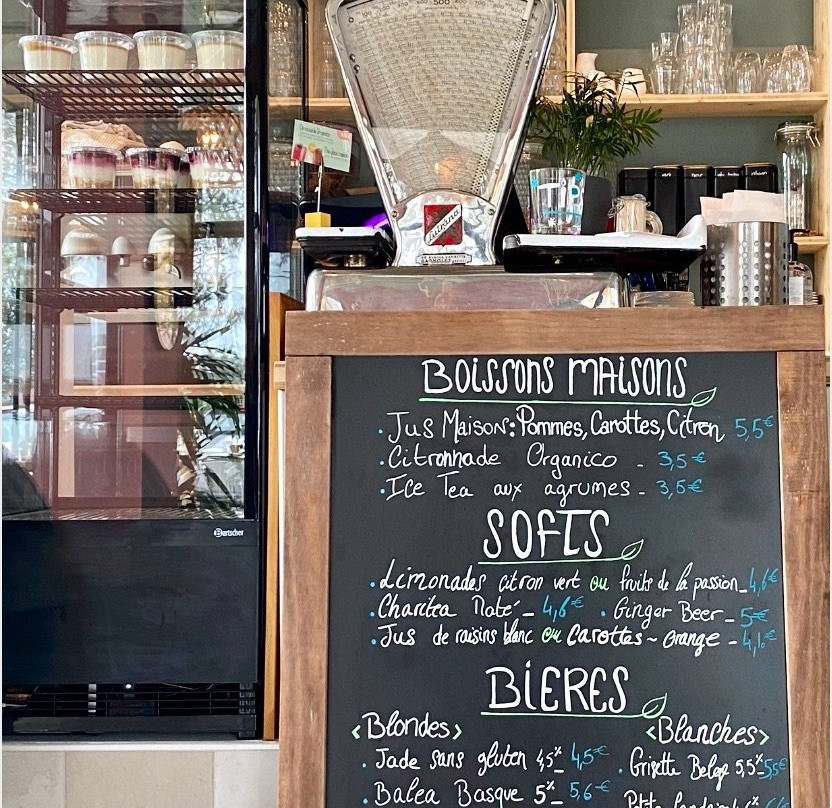 500
Bartscher
BOISSONS MAISONS
• Jus Maison: Pommes, Carottes, Citron 5,5€
• Citronnade Organico - 3,5€
• Ice Tea aux agrumes - 3,5€
SOFTS
• Limonades citron vert ou fruits de la passion - 4,6€
• Charitea Maté - 4,6€ • Ginger Beer - 5€
• Jus de raisins blanc ou Carottes ~ orange - 4,1€
BIERES
<Blondes> <Blanches>
• Jade sans gluten 4,5% - 4,5€ • Grisette Belge 5,5% 5,5€
• Balea Basque 5% - 5,6€